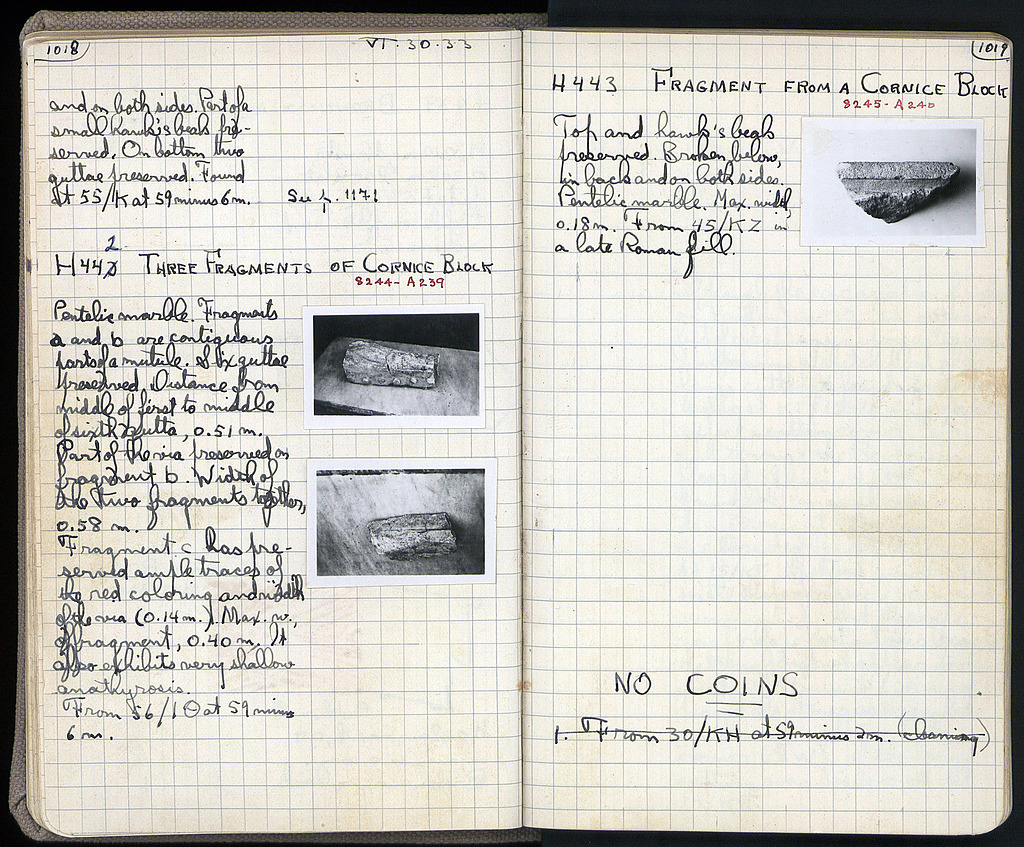 1018
VI.30.33
and on both sides. Part of a
small hawk's beak pre-
served. On bottom two
guttae preserved. Found
at 55/K at 59 minus 6 m. See p. 1171
2
H 442 THREE FRAGMENTS OF CORNICE BLOCK
8244- A 239
Pentelic marble. Fragments
a and b are contiguous
parts of a mutule. Six guttae
preserved. Distance from
middle of first to middle
of sixth gutta, 0.51 m.
Part of the via preserved on
fragment b. Width of
the two fragments together,
0.58 m.
Fragment c has pre-
served ample traces of
the red coloring and width
of the via (0.14 m.). Max. w.,
of fragment, 0.40 m. It
also exhibits very shallow
anathyrosis.
From 56/ at 59 minus
6 m.
1019
H 443 FRAGMENT FROM A CORNICE BLOCK
8245- A 240
Top and hawk's beak
preserved. Broken below,
in back and on both sides.
Pentelic marble. Max. width,
0.18 m. From 45/KZ in
a late Roman fill.
NO COINS
1. From 30/KH at 59 minus 2 m. (cleaning)